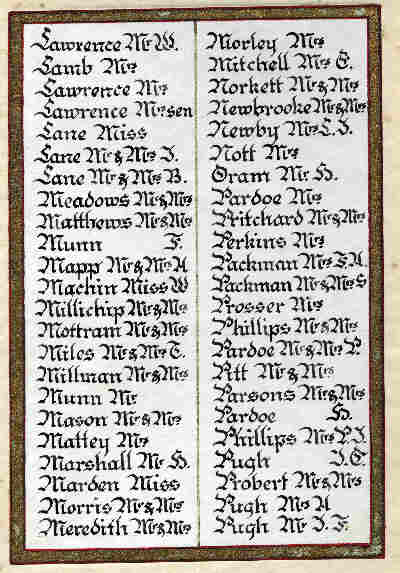 Lawrence Mr W.
Lamb Mrs
Lawrence Mrs
Lawrence Mrs sen
Lane Miss
Lane Mr & Mrs J.
Lane Mr & Mrs B.
Meadows Mr & Mrs
Matthews Mr & Mrs
Munn F.
Mapp Mr & Mrs A
Machin Miss W
Millichip Mr & Mrs
Mottram Mr & Mrs
Miles Mr & Mrs T.
Millman Mr & Mrs
Munn Mr
Mason Mr & Mrs
Matley Mrs
Marshall Mr H.
Marden Miss
Morris Mr & Mrs
Meredith Mr & Mrs
Morley Mrs
Mitchell Mrs E.
Norkett Mr & Mrs
Newbrooke Mr & Mrs
Newby Mrs L. J.
Nott Mrs
Oram Mr H.
Pardoe Mrs
Pritchard Mr & Mrs
Perkins Mrs
Packman Mrs T. A.
Packman Mr & Mrs S
Prosser
Phillips Mr & Mrs
Pardoe Mr & Mrs P.
Pitt Mr & Mrs
Parsons Mr & Mrs
Pardoe H.
Phillips Mrs P. J.
Pugh J. E.
Probert Mr & Mrs
Pugh Mrs A
Pugh Mr J. F.